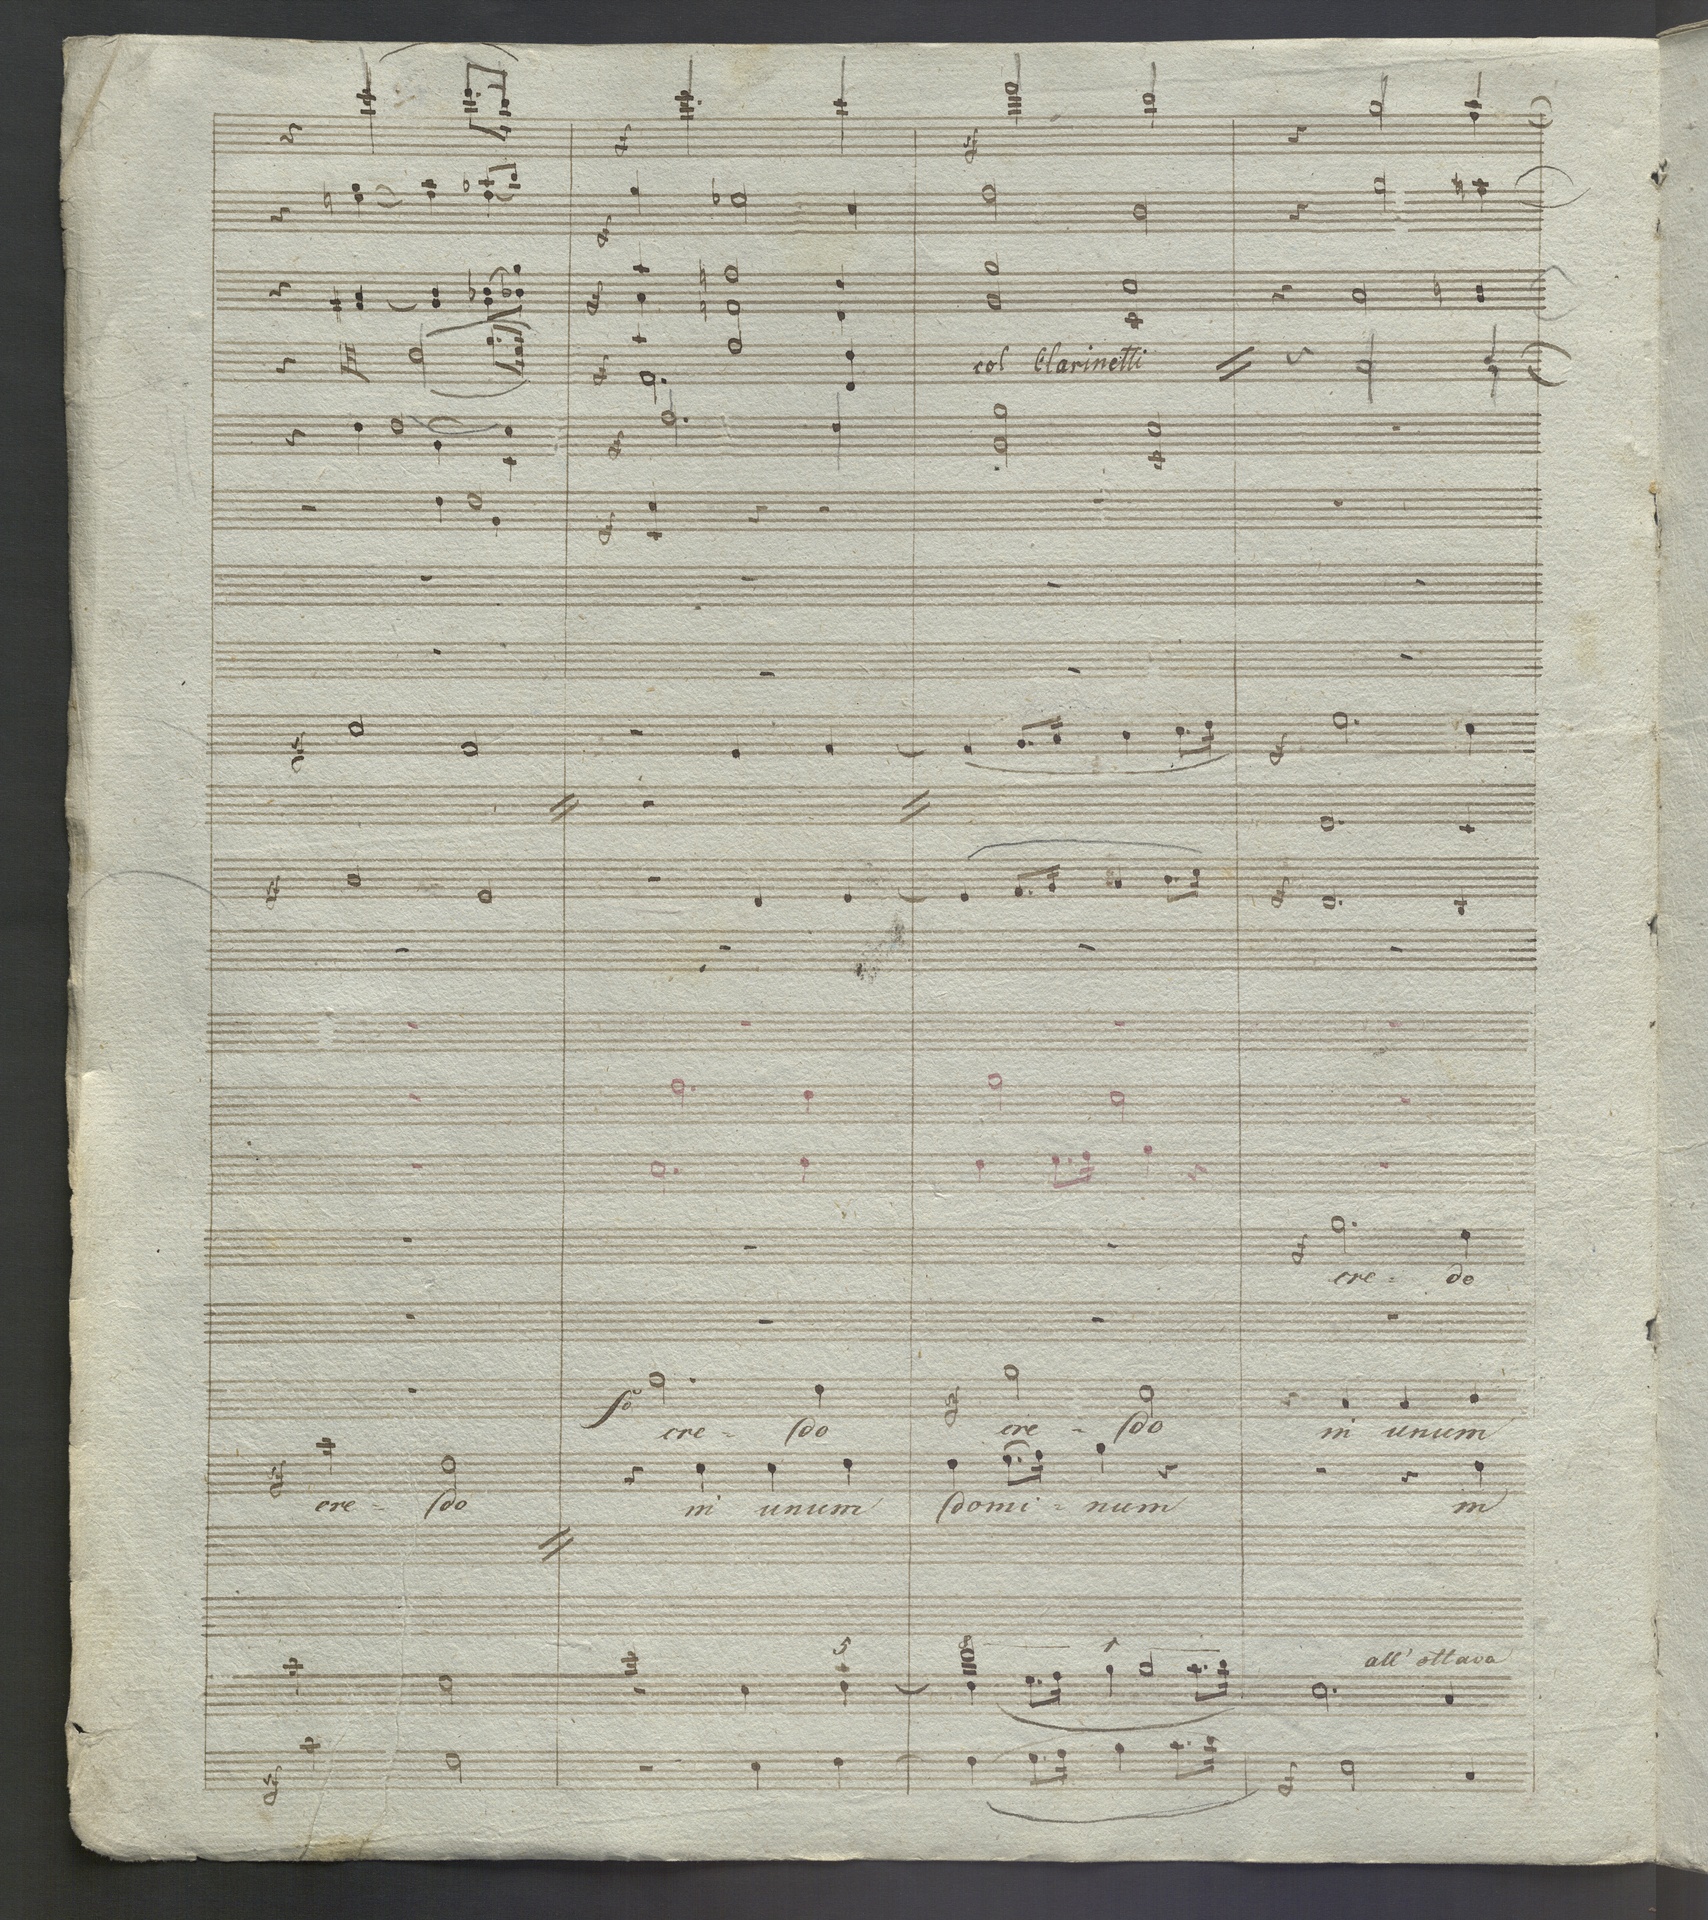 col Clarinetti
cre- do
fo
cre- do cre- do in unum
cre- do in unum domi- num in
5 8 1
all' ottava